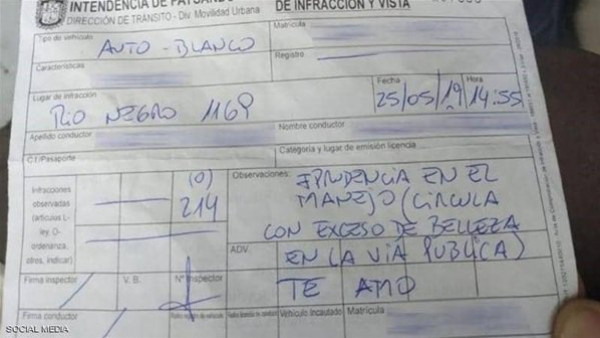 INTENDENCIA DE PAYSANDÚ
DE INFRACCIÓN Y VISTA
DIRECCIÓN DE TRÁNSITO - Div. Movilidad Urbana
Tipo de vehículo
AUTO - BLANCO
Matrícula
Características
Registro
Lugar de infracción
RIO NEGRO 1169
Fecha
25/05/19
Hora
14:55
Apellido conductor
Nombre conductor
C.I/Pasaporte
Categoría y lugar de emisión licencia
Infracciones
observadas
(artículos L-
ley, O-
ordenanza,
otros, indicar)
(O)
214
Observaciones:
IPRUDENCIA EN EL
MANEJO (CIRCULA
CON EXCESO DE BELLEZA
EN LA VIA PUBLICA)
ADV.
TE AMO
Firma inspector
V. B.
Nº Inspector
Firma conductor
Vehículo incautado
Matrícula
SOCIAL MEDIA